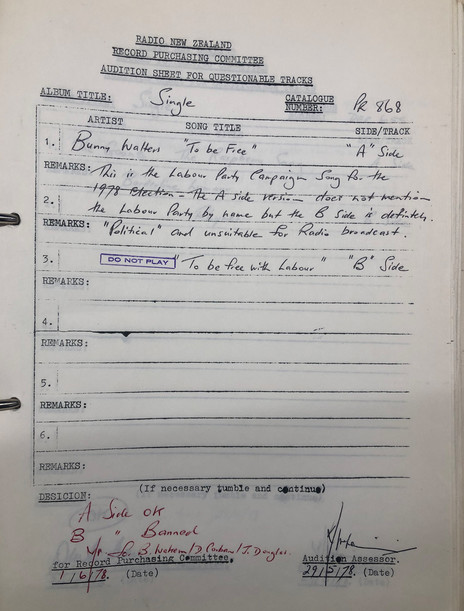 RADIO NEW ZEALAND
RECORD PURCHASING COMMITTEE
AUDITION SHEET FOR QUESTIONABLE TRACKS
ALBUM TITLE: Single CATALOGUE NUMBER: PR 868
ARTIST SONG TITLE SIDE/TRACK
1. Bunny Walters "To be Free" "A" Side
REMARKS: This is the Labour Party Campaign Song for the
2. 1978 Election - the A side version does not mention
the Labour Party by name but the B side is definitely
REMARKS: "Political" and unsuitable for Radio broadcast.
3. DO NOT PLAY "To be free with Labour" "B" Side
REMARKS:
4.
REMARKS:
5.
REMARKS:
6.
REMARKS:
(If necessary tumble and continue)
DESICION:
A Side OK
B " Banned
for Record Purchasing Committee,
Audition Assessor.
1/6/78. (Date)
29/5/78. (Date)